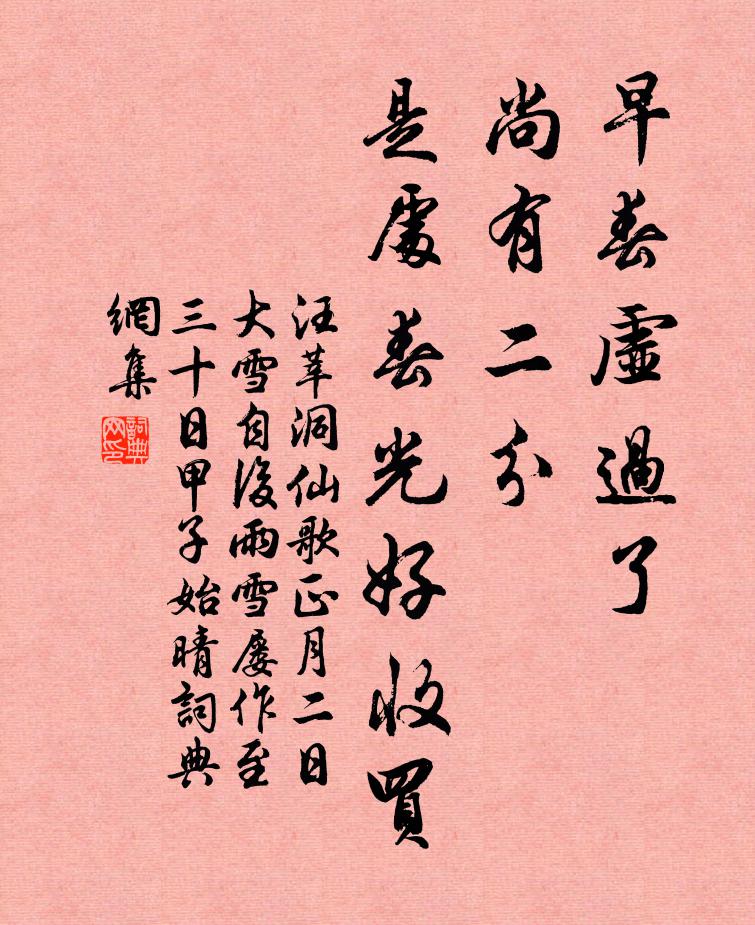 早春虛過了
尚有二分
是處春光好收買
汪莘洞仙歌正月二日
大雪自後雨雪屢作至
三十日甲子始晴詞典
網集
詞典
网印